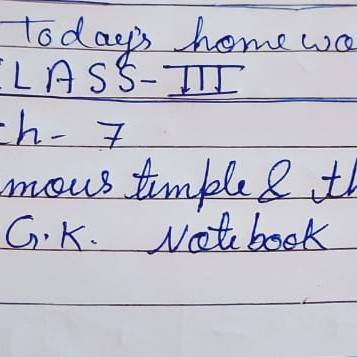 Today's home wo
CLASS-III
ch- 7
mous temple & th
G.K. Notebook